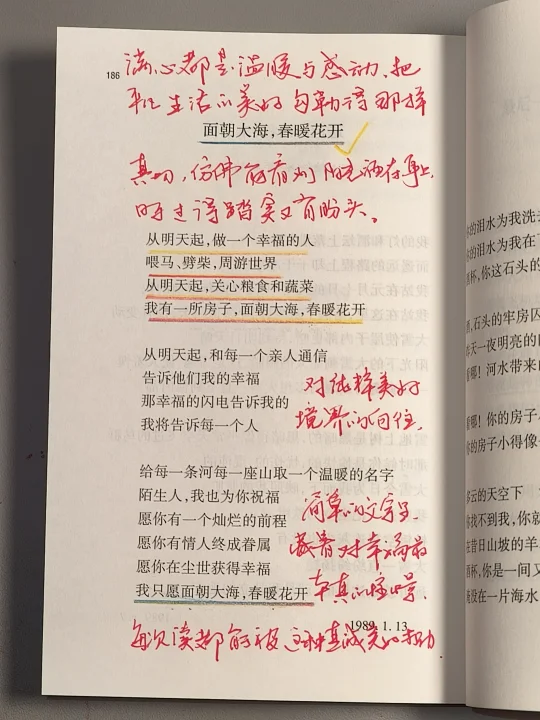 186
满心都是温暖与感动、把
平凡生活的美好勾勒得那样
面朝大海，春暖花开
真切，仿佛能看到阳光洒在身上，
日子过得踏实又有盼头。
从明天起，做一个幸福的人
喂马、劈柴，周游世界
从明天起，关心粮食和蔬菜
我有一所房子，面朝大海，春暖花开
从明天起，和每一个亲人通信
告诉他们我的幸福
那幸福的闪电告诉我的
我将告诉每一个人
对纯粹美好
境界的向往，
给每一条河每一座山取一个温暖的名字
陌生人，我也为你祝福
愿你有一个灿烂的前程
愿你有情人终成眷属
愿你在尘世获得幸福
我只愿面朝大海，春暖花开
简单的文字里
藏着对幸福最
本真的憧憬
1989.1.13.
每次读都能被这种真诚
的泪水为我洗去
石头的牢房囚
天一夜明亮的
河水带来
你的房子小
你的房子小得像
多云的天空下
找不到我，你就
在昔日山坡的羊
酒杯，你是一间又
没在一片海水